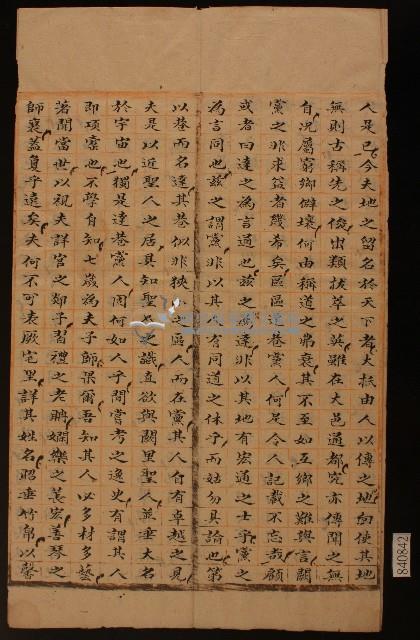 人是已今夫地之留名於天下者大抵由人以傳之地向使其地
無則古稱先之俊出類拔萃之英雖在大邑通都究亦傳聞之無
自况屬窮鄉僻壤何由稱道之弗衰其不至如互鄉之難與言闕
黨之非求益者幾希矣區區達巷黨人何足令人記載不忘哉顧
或者曰達之為言通也茲之為達非以其地有宏通之士乎黨之
為言同也茲之謂黨非以其人有同道之休乎而姑勿具論也第
以巷而名達其巷似非狹小之區人而在黨其人自有卓越之見
夫是以近聖人之居具知聖人之識直欲與闕里聖人並垂大名
於宇宙也獨是達巷黨人固何如人乎間嘗考之逸史有謂其人
即項橐也不學自知七歲為夫子師果爾吾知其人必多材多藝
著聞當世以視夫詳官之郯子習禮之老聃嫻樂之萇宏善琴之
師襄蓋敻乎遠矣夫何不可表厥宅里詳其姓名昭垂竹帛以馨
840842